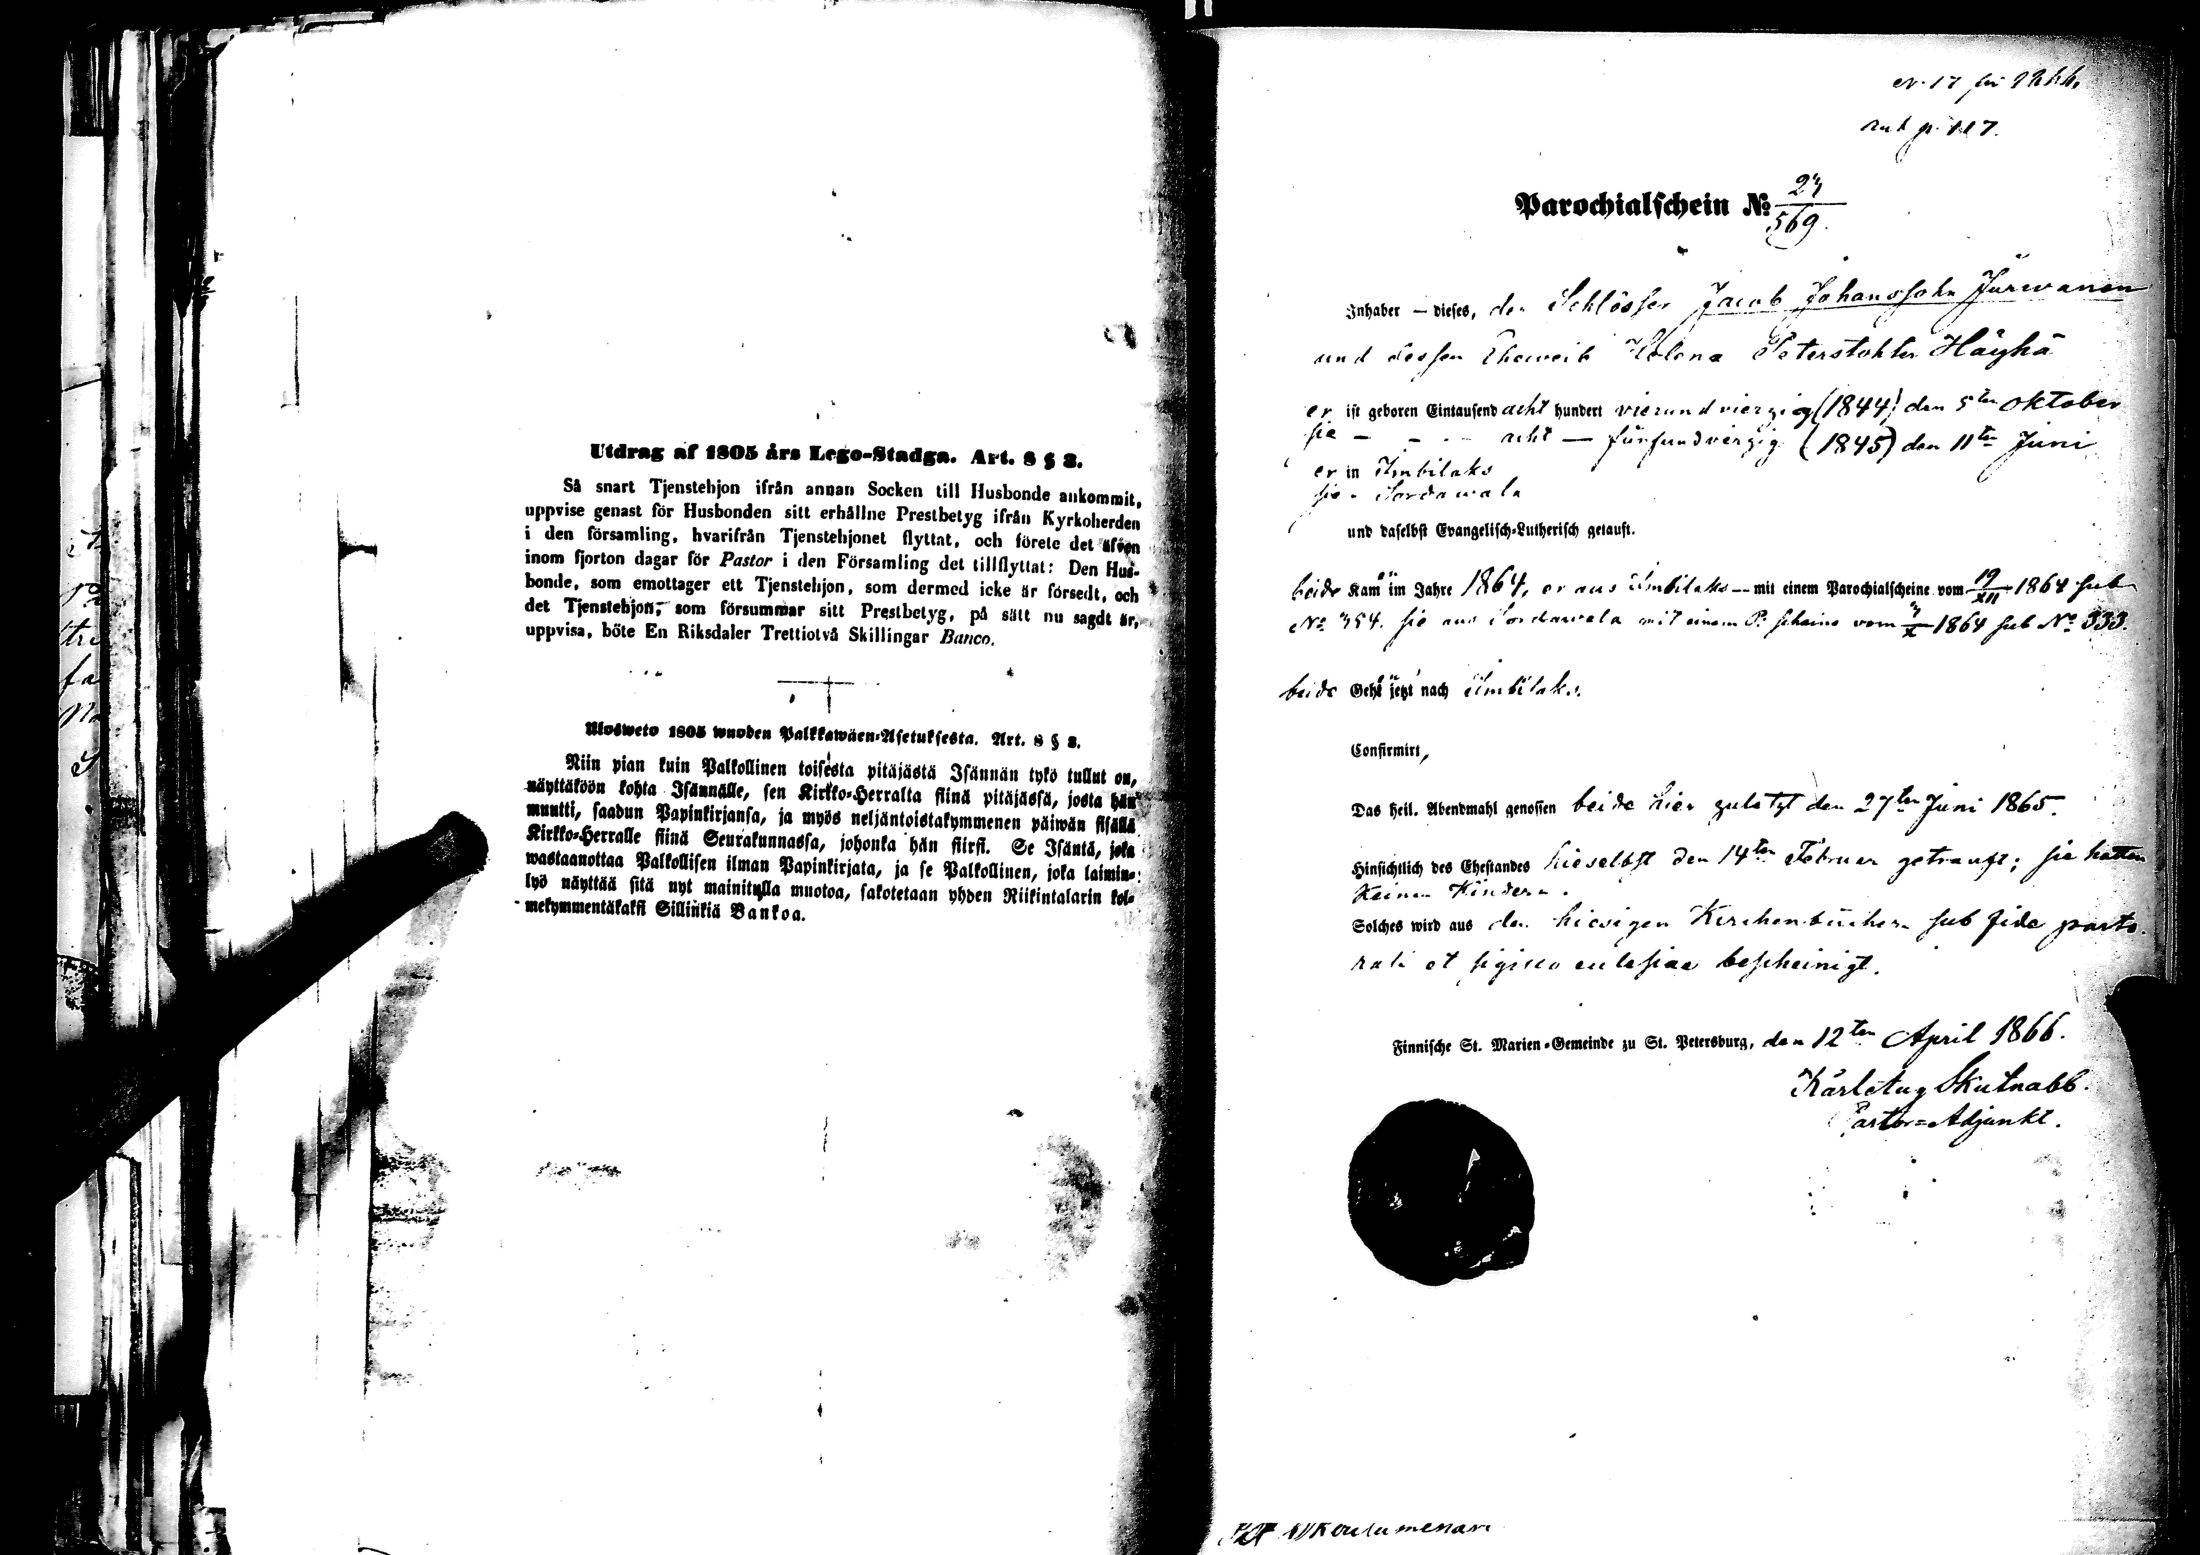 Utdrag af 1805 års Lego-Stadga. Art. 8 § 3.
Så snart Tjenstehjon ifrån annan Socken till Husbonde ankommit,
uppvise genast för Husbonden sitt erhållne Prestbetyg ifrån Kyrkoherden
i den församling, hvarifrån Tjenstehjonet flyttat, och förete det äfven
inom fjorton dagar för Pastor i den Församling det tillflyttat: Den Hus-
bonde, som emottager ett Tjenstehjon, som dermed icke är försedt, och
det Tjenstehjon, som försummar sitt Prestbetyg, på sätt nu sagdt är,
uppvisa, böte En Riksdaler Trettiotvå Skillingar Banco.
Ulosweto 1805 wuoden Palkkawäen-Asetuksesta. Art. 8 § 3.
Niin pian kuin Palkollinen toisesta pitäjästä Isännän tykö tullut on,
näyttäköön kohta Isännälle, sen Kirkko-Herralta siinä pitäjässä, josta hän
muutti, saadun Papinkirjansa, ja myös neljäntoistakymmenen päiwän sisällä
Kirkko-Herralle siinä Seurakunnassa, johonka hän siirsi. Se Isäntä, joka
wastaanottaa Palkollisen ilman Papinkirjata, ja se Palkollinen, joka laimin-
lyö näyttää sitä nyt mainitulla muotoa, sakotetaan yhden Riikintalarin kol-
mekymmentäkaksi Sillinkiä Bankoa.
p. 117.
Parochialschein № 24/569.
Inhaber – dieses, der Schlösser Jacob Johanssohn Järwanen
und dessen Eheweib Helena Peterstohter Häyhä
er ist geboren Eintausend acht hundert vierundvierzig (1844) den 5ten Oktober
sie – – – acht – fünfundvierzig (1845) den 11ten Juni
er in Imbilaks
sie – Sordawala
und daselbst Evangelisch-Lutherisch getauft.
beide Kam im Jahre 1864, er aus Imbilaks – mit einem Parochialscheine vom 19/XII 1864 sub
№ 354. sie aus Sordawala mit einem P. scheine vom /X 1864 sub № 333.
beide Geht jetzt nach Imbilaks.
Confirmirt,
Das heil. Abendmahl genossen beide hier zuletzt den 27ten Juni 1865.
Hinsichtlich des Ehestandes hieselbst den 14ten Februar getrauft; sie hatten
keinen Kindern.
Solches wird aus den hiesigen Kirchenbüchern sub fide pasto-
rali et sigillo eclesiae bescheinigt.
Finnische St. Marien-Gemeinde zu St. Petersburg, den 12ten April 1866.
Karl Aug Skutnabb.
Pastor=Adjunkt.